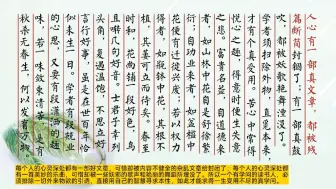 人心有一部真文章，都被残
篇断简封锢了；有一部真鼓
吹，都被妖歌艳舞湮没了。
学者须扫除外物，直觅本来，
才有个真受用。苦心中常得
悦心之趣，得意时便生失意
之悲。富贵名誉，自道德来
者，如山林中花，自是舒徐繁
衍；自功业来者，如盆槛中
花，便有迁徙兴废；若以权力
得者，如瓶钵中花，其根不
植，其萎可立而待矣。春至
时和，花尚铺一段好色，鸟
且啭几句好音。士君子幸列
头角，复遇温饱，不思立好
言行好事，虽是在世百年，恰
似未生一日。学者有段兢业
的心思，又要有段潇洒的趣
味，若一味敛束清苦，是有
秋杀无春生，何以发育万物
每个人的心灵深处都有一部好文章，可惜却被内容不健全的杂乱文章给封闭了；每个人的心灵深处都
有一首美妙的乐曲，可惜却被一些妖邪的歌声和艳丽的舞蹈所埋没了。所以一个有学问的读书人，必
须排除一切外来物欲的引诱，直接用自己的智慧寻求本性，如此才能求得一生受用不尽的真学问。